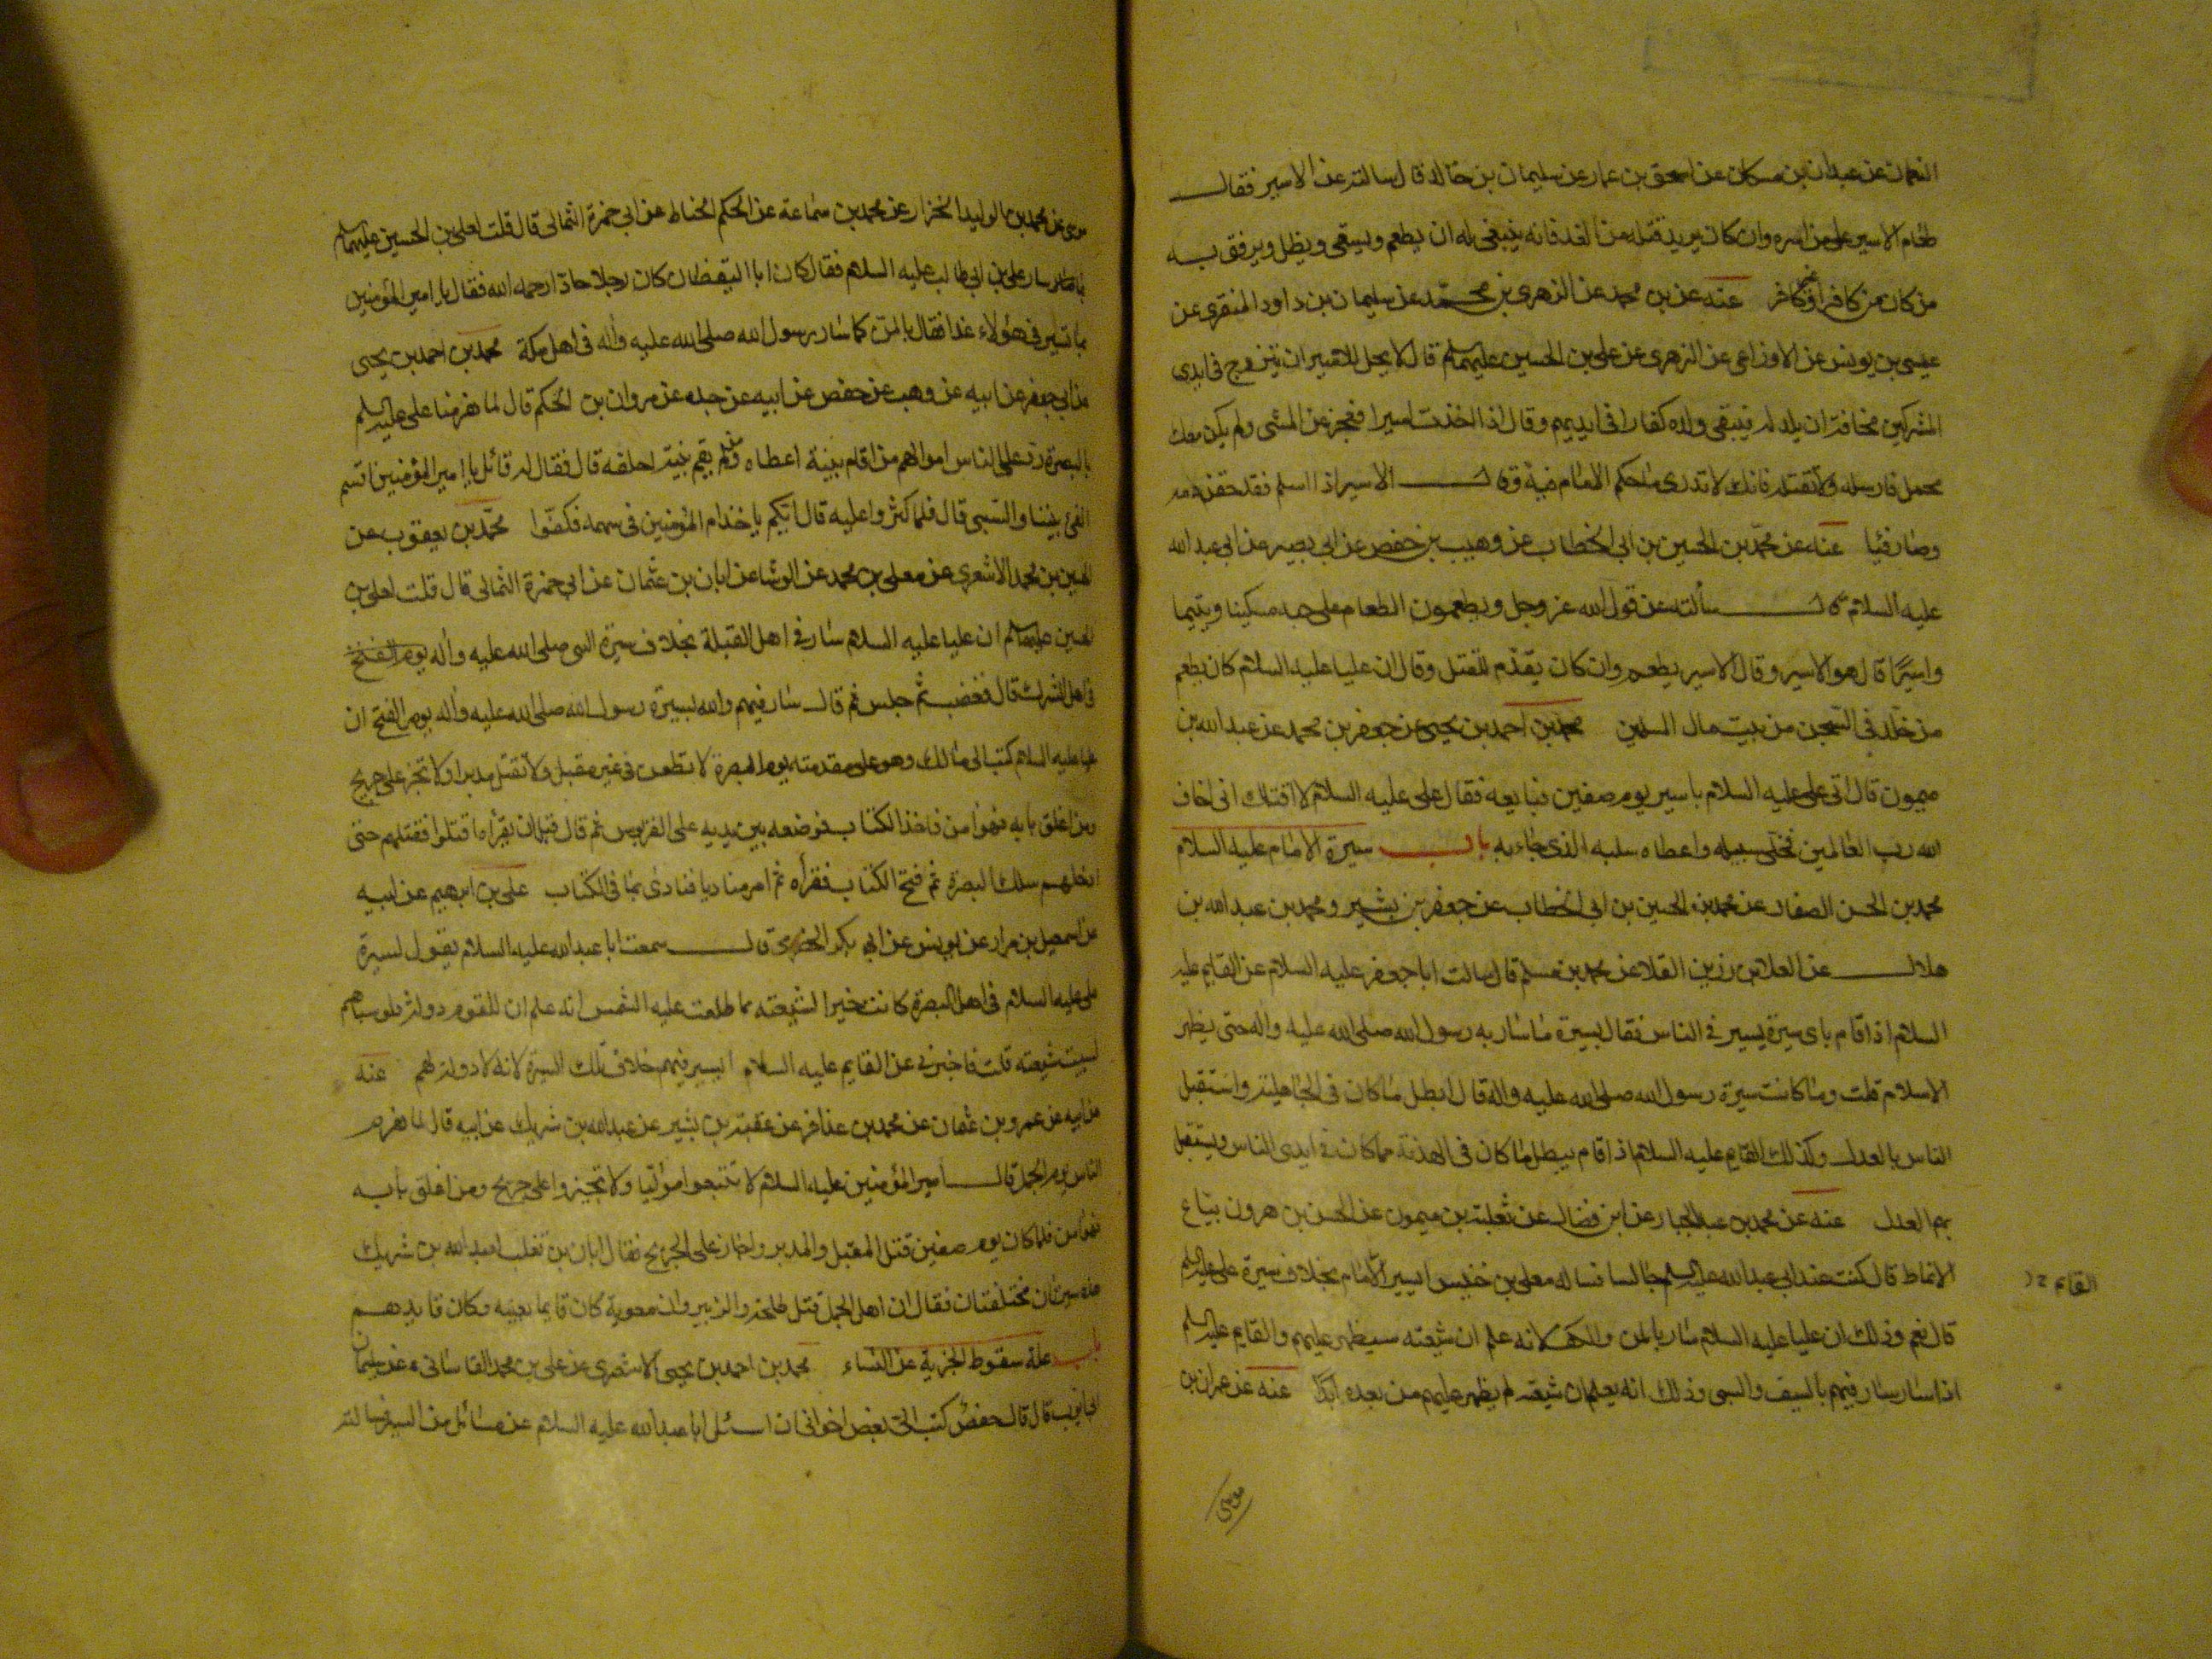 النعمان عن عبدالله بن مسكان عن اسحق بن عمار عن سليمان بن خالد قال سالته عن الاسير فقال
طعام الاسير على من اسره وان كان يريد قتله من الغد فانه ينبغى له ان يطعم ويسقى ويظل ويرفق به
من كان من كافر او غير كافر عنه عن بن محمد عن الزهرى بن محمد عن سليمان بن داود المنقرى عن
عيسى بن يونس عن الاوزاعى عن الزهرى عن على بن الحسين عليهما السلم قال لا يحل للاسير ان يتزوج فى ايدى
المشركين مخافة ان يلد له فيبقى ولده كفارا فى ايديهم وقال اذا اخذت اسيرا فعجز عن المشى ولم يكن معك
محمل فارسله ولا تقتله فانك لا تدرى ما حكم الامام فيه وقال الاسير اذا اسلم فقد حقن دمه
وصار فيئا عنه عن محمد بن الحسين بن ابى الخطاب عن وهيب بن حفص عن ابى بصير عن ابى عبد الله
عليه السلام قال سألته عن قول الله عز وجل ويطعمون الطعام على حبه مسكينا ويتيما
واسيرًا قال هو الاسير وقال الاسير يطعم وان كان يقدم للقتل وقال ان عليا عليه السلام كان يطعم
من خلد فى السجن من بيت مال المسلمين محمد بن احمد بن يحيى عن جعفر بن محمد عن عبد الله بن
ميمون قال اتى على عليه السلام باسير يوم صفين فبايعه فقال على عليه السلام لا اقتلك انى اخاف
الله رب العالمين فخلى سبيله واعطاه سلبه الذى جاء به باب سيرة الامام عليه السلام
محمد بن الحسن الصفار عن محمد بن الحسين بن ابى الخطاب عن جعفر بن بشير ومحمد بن عبد الله بن
هلال عن العلا بن رزين القلا عن محمد بن مسلم قال سالت ابا جعفر عليه السلام عن القايم عليه
السلام اذا قام باى سيرة يسير فى الناس فقال بسيرة ما سار به رسول الله صلى الله عليه واله حتى يظهر
الاسلام قلت وما كانت سيرة رسول الله صلى الله عليه واله قال ابطل ما كان فى الجاهلية واستقبل
الناس بالعدل وكذلك القايم عليه السلام اذا قام يبطل ما كان فى الهدنة مما كان فى ايدى الناس ويستقبل
بهم العدل عنه عن محمد بن عبد الجبار عن ابن فضال عن ثعلبة بن ميمون عن الحسن بن هرون بياع
الانماط قال كنت عند ابى عبد الله عليه السلم جالسا فساله معلى بن خنيس ايسير الامام بخلاف سيرة على عليه السلم
القايم
قال نعم وذلك ان عليا عليه السلام سار بالمن والكف لانه علم ان شيعته سيظهر عليهم والقايم عليه السلم
اذا سار سار فيهم بالسيف والسبى وذلك انه يعلم ان شيعته لم يظهر عليهم من بعده ابدًا عنه عن عمران بن
موسى
موسى عن محمد بن الوليد الخزاز عن محمد بن سماعة عن الحكم الحناط عن ابى حمزة الثمالى قال قلت لعلى بن الحسين عليهما السلم
بما سار على بن ابى طالب عليه السلام فقال كان ابا اليقظان كان رجلا حادا رحمه الله فقال يا امير المؤمنين
بما تسير فى هؤلاء غدا فقال بالمن كما سار رسول الله صلى الله عليه واله فى اهل مكة محمد بن احمد بن يحيى
عن ابى جعفر عن ابيه عن وهب عن حفص عن ابيه عن جده عن مروان بن الحكم قال لما هزمنا على عليه السلم
بالبصرة رد على الناس اموالهم من اقام بينة اعطاه ومن لم يقم بينة احلفه قال فقال له قائل يا امير المؤمنين اقسم
الفئ بيننا والسبى قال فلما كثروا عليه قال ايكم ياخذ ام المؤمنين فى سهمه فكفوا محمد بن يعقوب عن
الحسين بن محمد الاشعرى عن معلى بن محمد عن الوشا عن ابان بن عثمان عن ابى حمزة الثمالى قال قلت لعلى بن
الحسين عليهما السلم ان عليا عليه السلام سار فى اهل القبلة بخلاف سيرة النبى صلى الله عليه واله يوم الفتح
فى اهل الشرك قال فغضب ثم جلس ثم قال سار فيهم والله بسيرة رسول الله صلى الله عليه واله يوم الفتح ان
عليا عليه السلام كتب الى مالك وهو على مقدمته يوم البصرة لا تطعن فى غير مقبل ولا تقتل مدبرا ولا تجز على جريح
ومن اغلق بابه فهو امن فاخذ الكتاب فوضعه بين يديه على القربوس ثم قال قبل ان يقرأه اقتلوا فقتلهم حتى
ادخلهم سكك البصرة ثم فتح الكتاب فقرأه ثم امر مناديا فنادى بما فى الكتاب على بن ابرهيم عن ابيه
عن اسمعيل بن مرار عن يونس عن ابى بكر الحضرمى قال سمعت ابا عبد الله عليه السلام يقول لسيرة
على عليه السلام فى اهل البصرة كانت خيرا لشيعته مما طلعت عليه الشمس انه علم ان للقوم دولة فلو سباهم
لسبيت شيعته قلت فاخبرنى عن القايم عليه السلام ايسير فيهم خلاف تلك السيرة لانه لا دولة لهم عنه
عن ابيه عن عمرو بن عثمان عن محمد بن عذافر عن عقبة بن بشير عن عبد الله بن شريك عن ابيه قال لما هزم
الناس يوم الجمل قال امير المؤمنين عليه السلام لا تتبعوا موليا ولا تجيزوا على جريح ومن اغلق بابه
فهو امن فلما كان يوم صفين قتل المقبل والمدبر واجاز على الجريح فقال ابان بن تغلب لعبد الله بن شريك
هذه سيرتان مختلفتان فقال ان اهل الجمل قتل طلحة والزبير وان معوية كان قايما بعينه وكان قايدهم
باب علة سقوط الجزية عن النساء محمد بن احمد بن يحيى الاشعرى عن على بن محمد القاسانى عن سليمان
ابى ايوب قال قال حفص كتب الى بعض اخوانى ان اسئل ابا عبد الله عليه السلام عن مسائل من السير فسالته